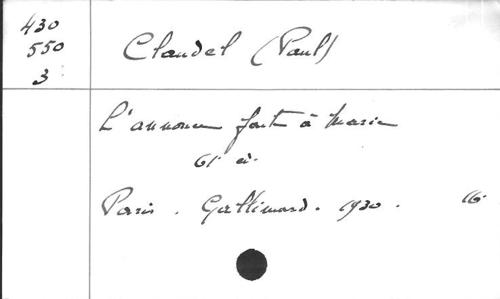 430
550
3
Claudel (Paul)
L'annonce faite à Marie
61e éd.
Paris. Gallimard. 1930. 16°